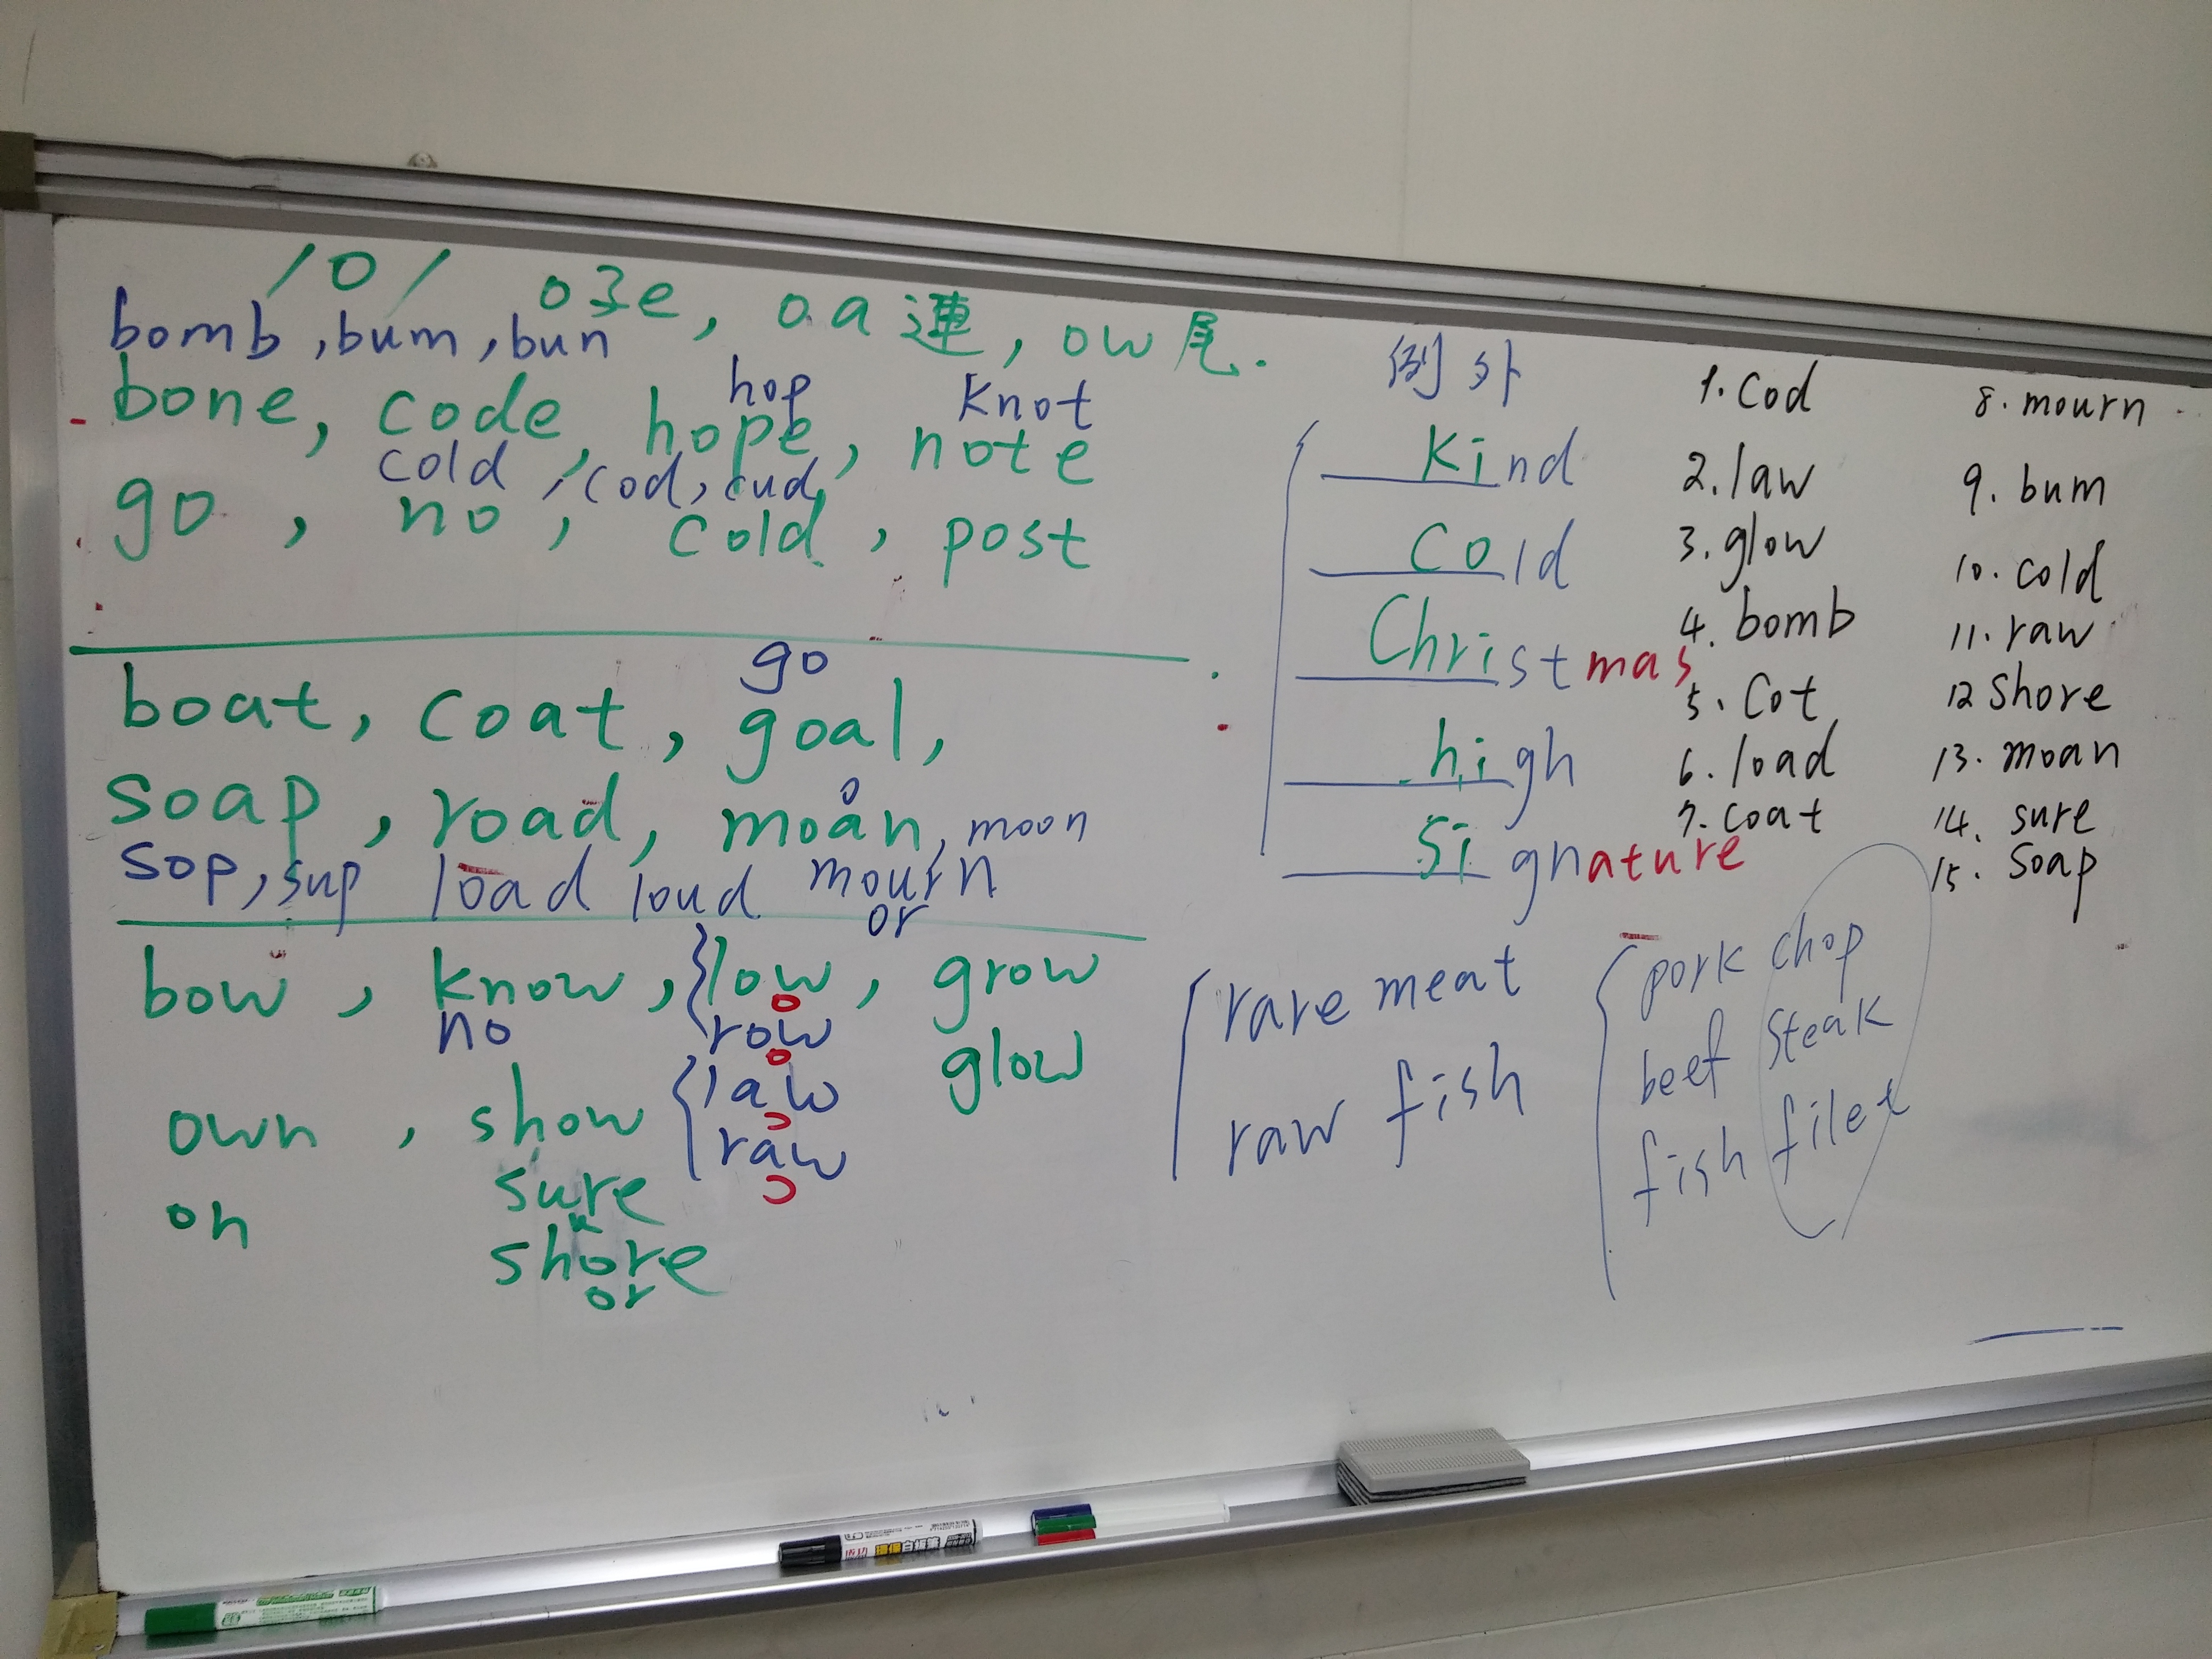 /o/ oㄋe, oa連, ow尾.
bomb, bum, bun
hop knot
bone, code, hope, note
cold, cod, cud,
go, no, cold, post
go
boat, coat, goal,
soap, road, moan, moon
o
sop, sup load loud mourn
or
bow, know, low, grow
no row glow
o
o
law
own, show raw
ɔ
ɔ
on sure
shore
or
例外
kind
cold
Christmas
high
signature
1. cod
2. law
3. glow
4. bomb
5. cot
6. load
7. coat
8. mourn
9. bum
10. cold
11. raw
12 shore
13. moan
14. sure
15. soap
rare meat
raw fish
pork chop
beef steak
fish filet
成功 環保白板筆